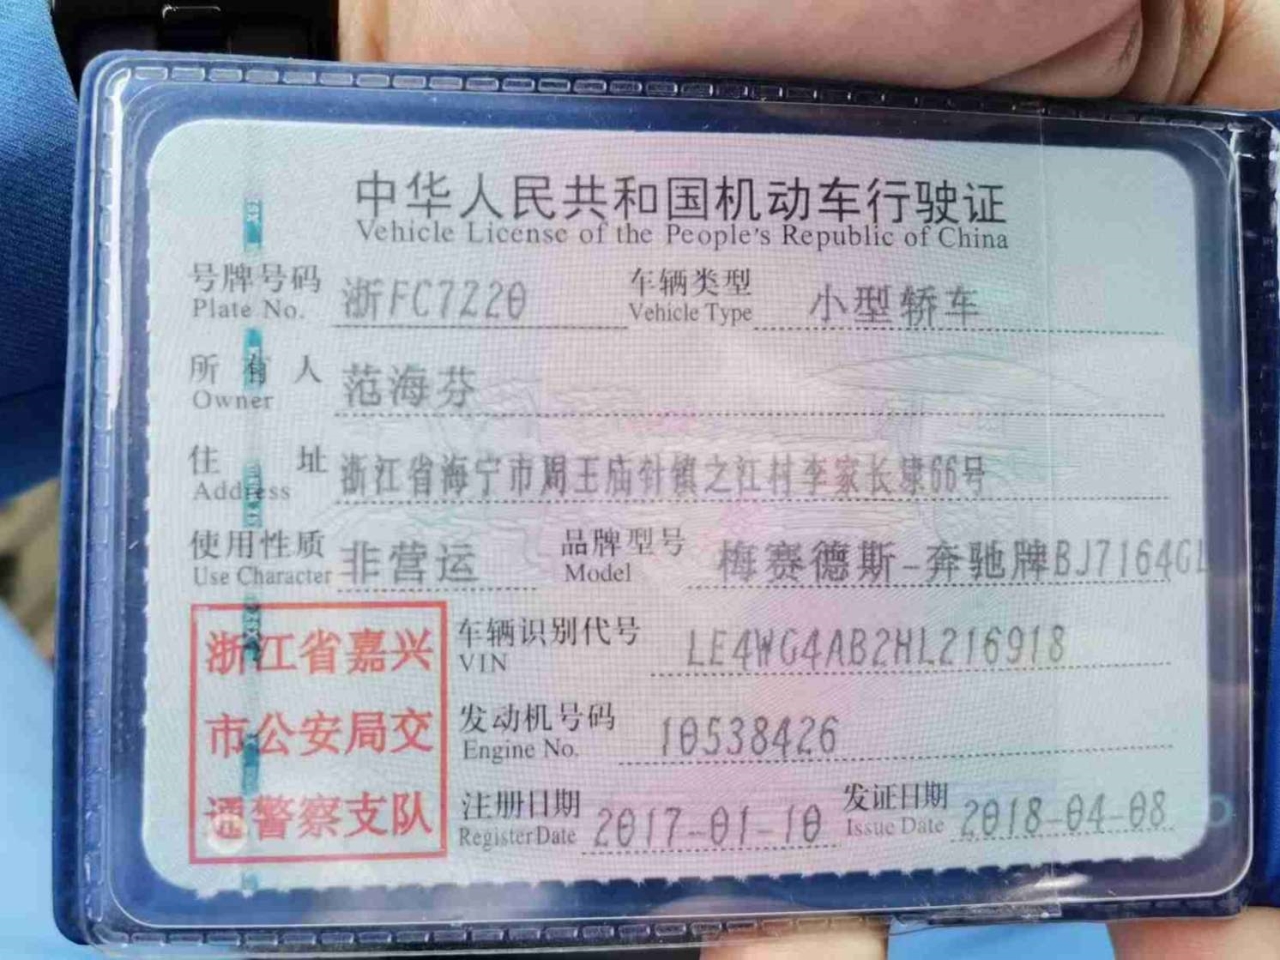 中华人民共和国机动车行驶证
Vehicle License of the People's Republic of China
号牌号码 浙FC7220 车辆类型 小型轿车
Plate No. Vehicle Type
所有人 范海芬
Owner
住址 浙江省海宁市周王庙针镇之江村李家长埭66号
Address
使用性质 非营运 品牌型号 梅赛德斯-奔驰牌BJ7164GL
Use Character Model
浙江省嘉兴
市公安局交
通警察支队
车辆识别代号 LE4WG4AB2HL216918
VIN
发动机号码 10538426
Engine No.
注册日期 2017-01-10 发证日期 2018-04-08
Register Date Issue Date